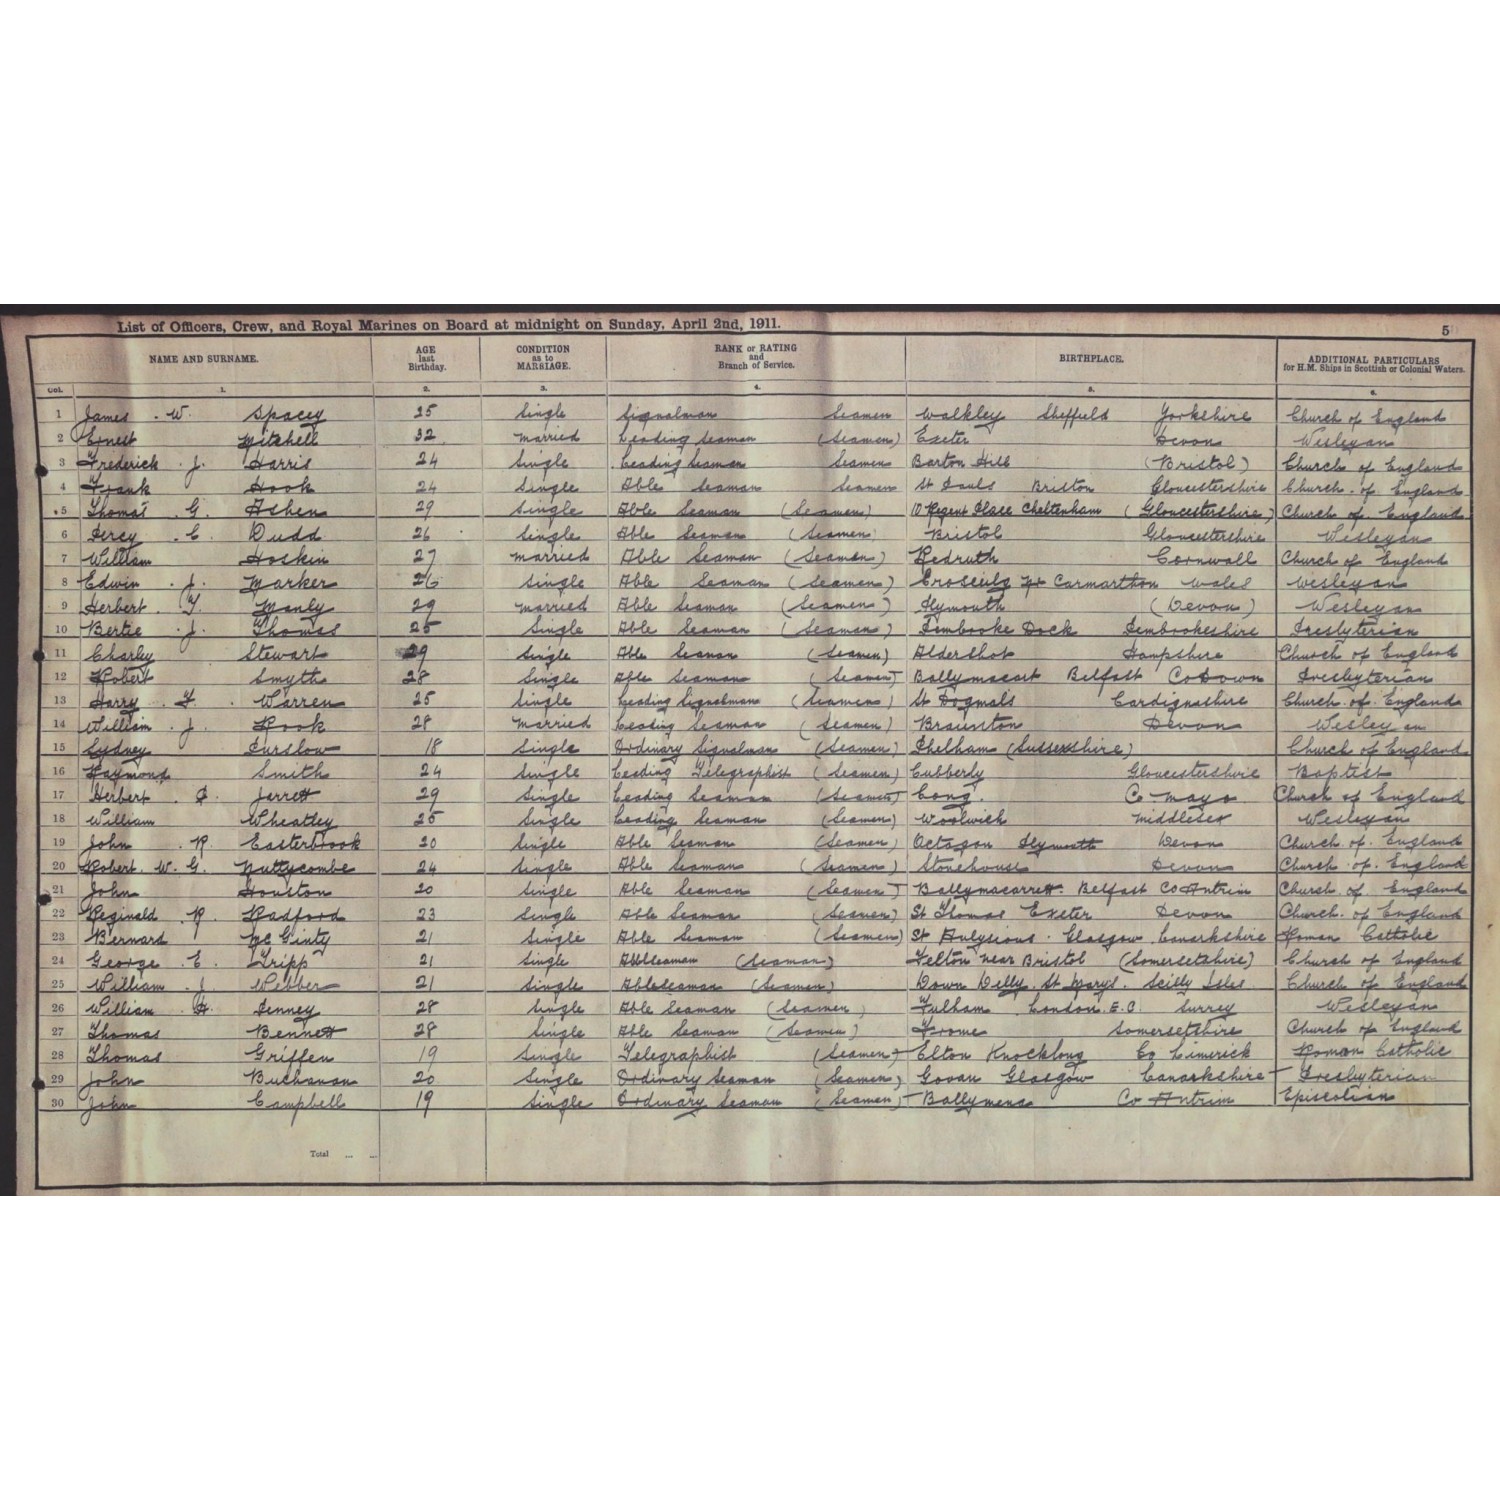 List of Officers, Crew, and Royal Marines on Board at midnight on Sunday, April 2nd, 1911. 5
NAME AND SURNAME. AGE last Birthday. CONDITION as to MARRIAGE. RANK or RATING and Branch of Service. BIRTHPLACE. ADDITIONAL PARTICULARS for H.M. Ships in Scottish or Colonial Waters.
Col. 1. 2. 3. 4. 5. 6.
1 James . W. Spacey 25 Single Signalman Seamen Walkley Sheffield Yorkshire Church of England
2 Ernest Mitchell 32 Married Leading Seaman (Seamen) Exeter Devon Wesleyan
3 Frederick . J. Harris 24 Single Leading Seaman Seamen Barton Hill (Bristol) Church of England
4 Frank Hook 24 Single Able Seaman Seamen St Pauls Briston Gloucestershire Church . of England
5 Thomas G. Ashen 29 Single Able Seaman (Seamen) 10 Regent Place Cheltenham (Gloucestershire) Church of England
6 Percy . C. Dudd 26 Single Able Seaman (Seamen) Bristol Gloucestershire Wesleyan
7 William Hoskin 27 Married Able Seaman (Seamen) Redruth Cornwall Church of England
8 Edwin . J. Marker 26 Single Able Seaman (Seamen) Carmarthon Wales Wesleyan
9 Herbert . Manly 29 Married Able Seaman (Seamen) Plymouth (Devon) Wesleyan
10 Bertie . J. Thomas 25 Single Able Seaman (Seaman) Pembroke Dock Pembrookeshire Presbyterian
11 Charley Stewart 29 Single Able Seaman (Seamen) Aldershot Hampshire Church of England
12 Robert Smyth 28 Single Able Seaman (Seamen) Ballymacart Belfast Co Down Presbyterian
13 Harry . F. Warren 25 Single Leading Signalman (Seamen) St Dogmals Cardiganshire Church of England
14 William . J. Rook 28 Married Leading Seaman (Seamen) Braunton Devon Wesleyan
15 Sydney Purslow 18 Single Ordinary Signalman (Seamen) (Sussexshire) Church of England
16 Raymond Smith 24 Single Leading Telegraphist (Seamen) Cubberly Gloucestershire Baptist
17 Herbert . Jarrett 29 Single Leading Seaman (Seamen) Cong. Co Mayo Church of England
18 William Wheatley 25 Single Leading Seaman (Seamen) Woolwich Middlesex Wesleyan
19 John . R. Easterbrook 20 Single Able Seaman (Seamen) Octagon Plymouth Devon Church of England
20 Robert W. G. Nuttycombe 24 Single Able Seaman (Seamen) Stonehouse Devon Church of England
21 John Houston 20 Single Able Seaman (Seamen) Ballymacarrett Belfast Co Antrim Church of England
22 Reginald . R. Radford 23 Single Able Seaman (Seamen) St Thomas Exeter Devon Church of England
23 Bernard Mc Ginty 21 Single Able Seaman (Seamen) St Glasgow Lanarkshire Roman Catholic
24 George . E. Tripp 21 Single Ableseaman (Seaman) Felton near Bristol (Somersetshire) Church of England
25 William . J. Webber 21 Single Ableseaman (Seamen) St Marys. Scilly Isles Church of England
26 William . H. Penney 28 Single Able Seaman (Seamen) Fulham London. E.C. Surrey Wesleyan
27 Thomas Bennett 28 Single Able Seaman (Seamen) Frome Somersetshire Church of England
28 Thomas Griffen 19 Single Telegraphist (Seamen) Elton Knocklong Co Limerick Roman Catholic
29 John Buchanan 20 Single Ordinary Seaman (Seamen) Govan Glasgow Lanarkshire Presbyterian
30 John Campbell 19 Single Ordinary Seaman (Seamen) Ballymena Co Antrim
Total ... ...